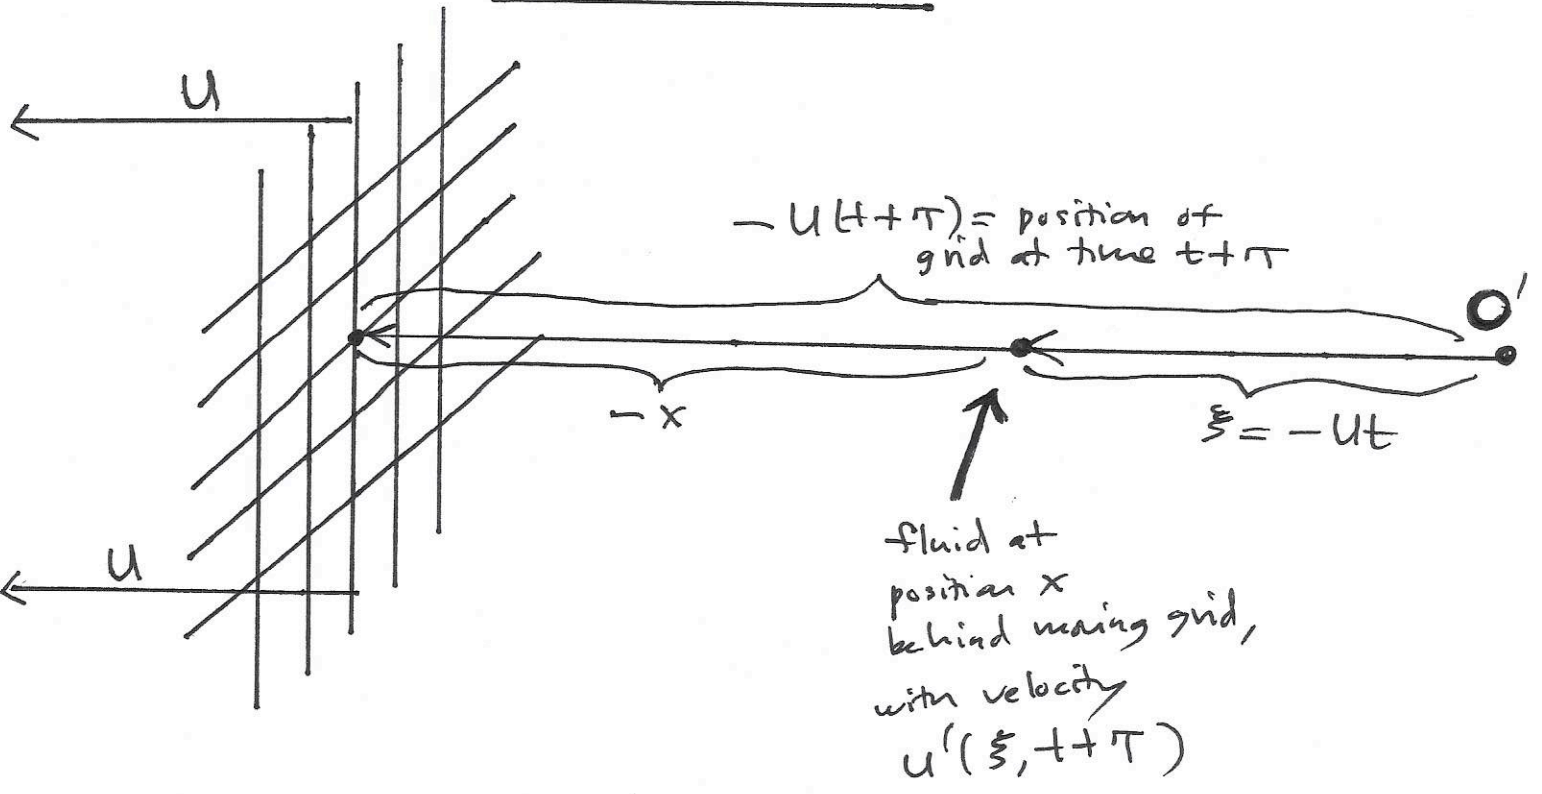 U
- U(t+τ) = position of
grid at time t+τ
O'
- x
ξ = - Ut
fluid at
position x
behind moving grid,
with velocity
u'(ξ, t+τ)
U